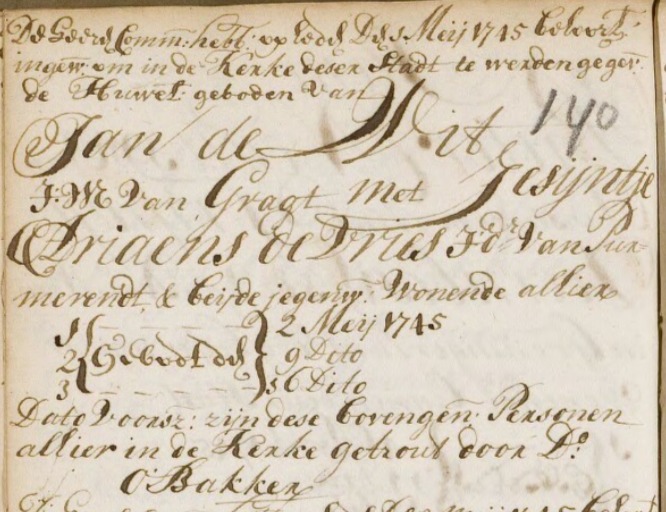 De Heeren Comm: hebb: op heden Den 1 Meij 1745 Belooft
ingew: om in de Kerke deser Stadt te werden gegev:
de Huwel: geboden van
140
Jan de Wit
J:M Van Graft met Jesijntje
Adriaens de Vries J:dr Van Pur=
merendt, & beijde jegenw: Wonende allier
1 2 Meij 1745
2 Gebodt den 9 Dito
3 16 Dito
Dato Voorsz: zijn dese bovengen: Personen
allier in de Kerke getrout door Ds:
O: Bakker